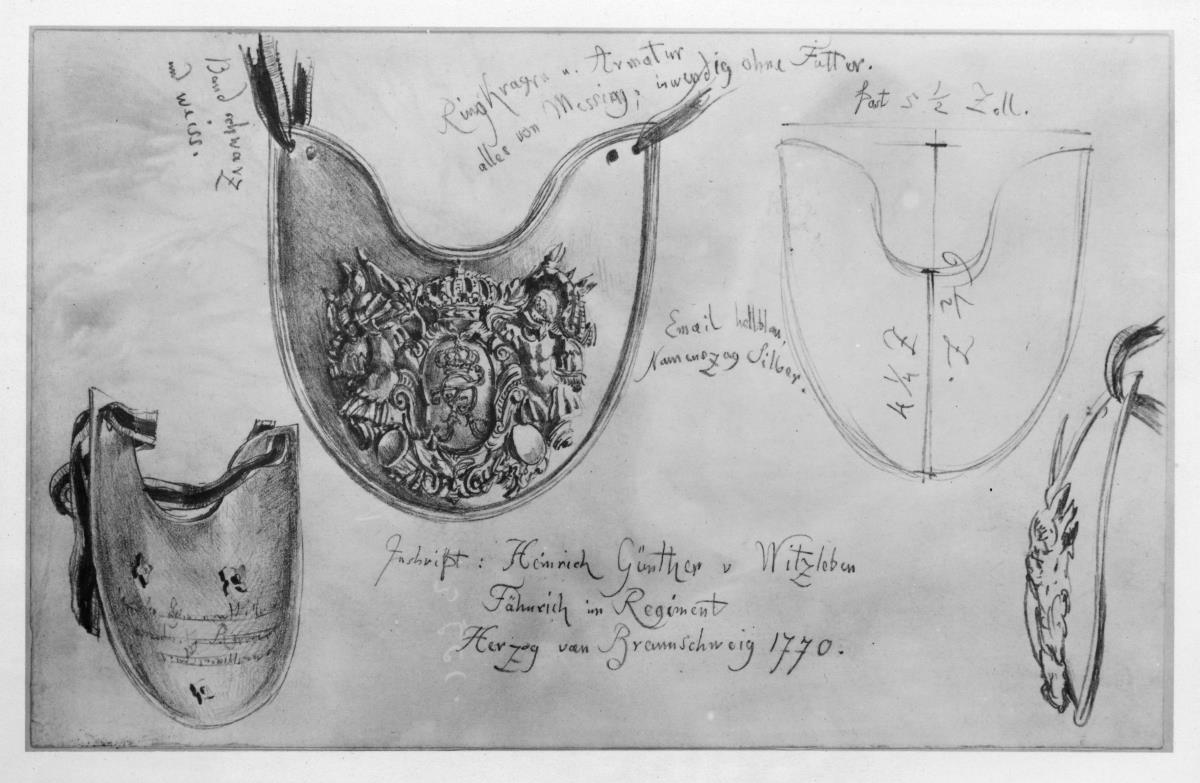 Band schwarz
u. weiss.
Ringkragen u. Armatur
alles von Messing; inwendig ohne Futter.
fast 5 ½ Zoll.
6 ½ Z.
4 ¼ Z
Email hellblau,
Namenszug Silber.
Inschrift : Heinrich Günther v Witzleben
Fähnrich im Regiment
Herzog von Braunschweig 1770.